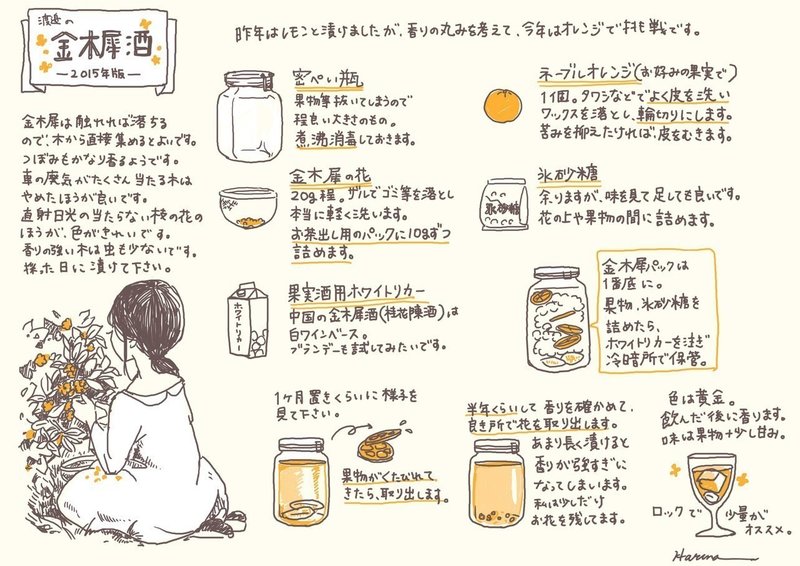 渡邉の
金木犀酒
―2015年版―
昨年はレモンと漬けましたが、香りの丸みを考えて、今年はオレンジで挑戦です。
金木犀は触れれば落ちる
ので、木から直接集めるとよいです。
つぼみもかなり香るようです。
車の廃気がたくさん当たる木は
やめたほうが良いです。
直射日光の当たらない枝の花の
ほうが、色がきれいです。
香りの強い木は虫も少ないです。
採った日に漬けて下さい。
密ぺい瓶
果物等抜いてしまうので
程良い大きさのもの。
煮沸消毒しておきます。
金木犀の花
20g程。ザルでゴミ等を落とし
本当に軽く洗います。
お茶出し用のパックに10gずつ
詰めます。
果実酒用ホワイトリカー
中国の金木犀酒(桂花陳酒)は
白ワインベース。
ブランデーも試してみたいです。
ホワイトリカー
ネーブルオレンジ(お好みの果実で)
1個。タワシなどでよく皮を洗い
ワックスを落とし、輪切りにします。
苦みを抑えたければ、皮をむきます。
氷砂糖
余りますが、味を見て足しても良いです。
花の上や果物の間に詰めます。
氷砂糖
金木犀パックは
1番底に。
果物、氷砂糖を
詰めたら、
ホワイトリカーを注ぎ
冷暗所で保管。
1ヶ月置きくらいに様子を
見て下さい。
果物がくたびれて
きたら、取り出します。
半年くらいして香りを確かめて、
良き所で花を取り出します。
あまり長く漬けると
香りが強すぎに
なってしまいます。
私は少しだけ
お花を残してます。
色は黄金。
飲んだ後に香ります。
味は果物+少し甘み。
ロックで
少量が
オススメ。
Haruna